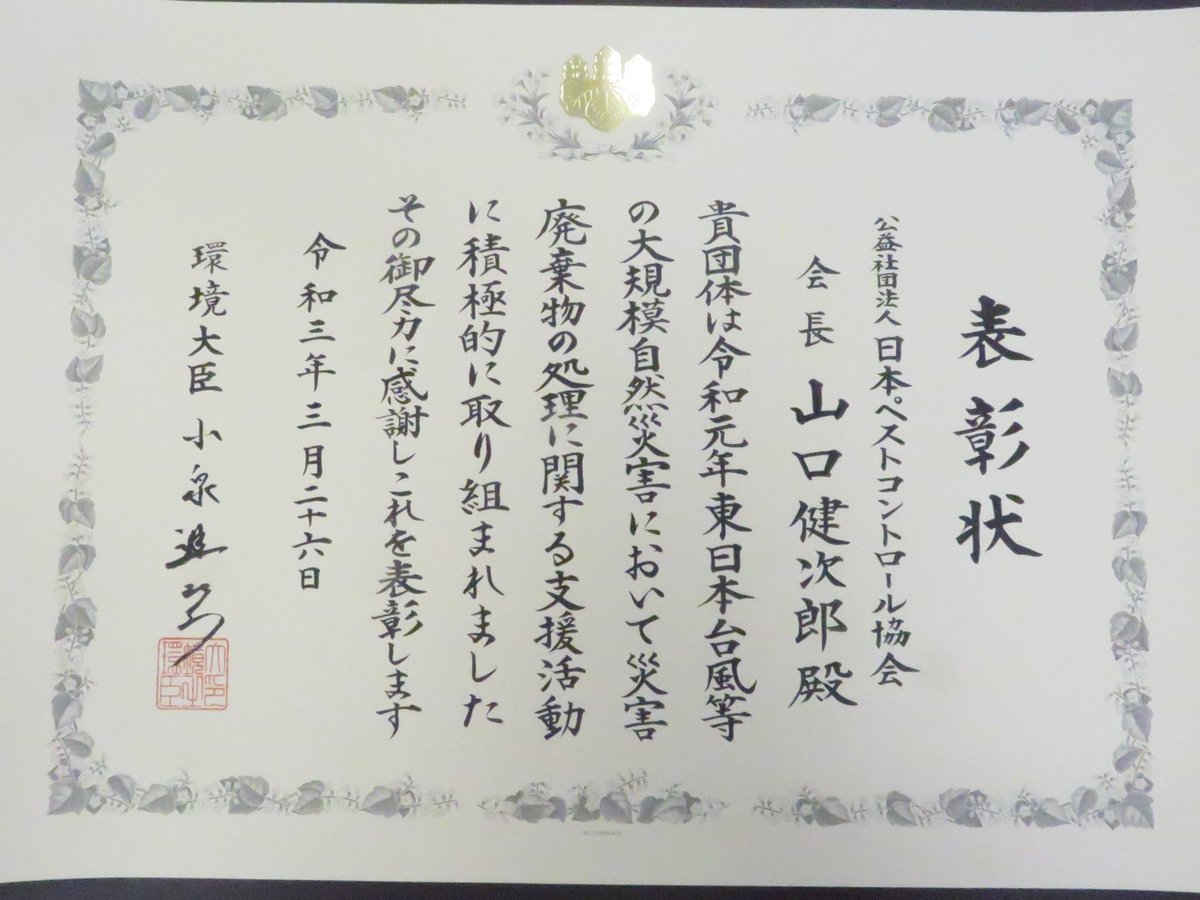 表彰状
公益社団法人日本ペストコントロール協会
会長 山口健次郎殿
貴団体は令和元年東日本台風等
の大規模自然災害において災害
廃棄物の処理に関する支援活動
に積極的に取り組まれました
その御尽力に感謝しこれを表彰します
令和三年三月二十六日
環境大臣 小泉進次郎